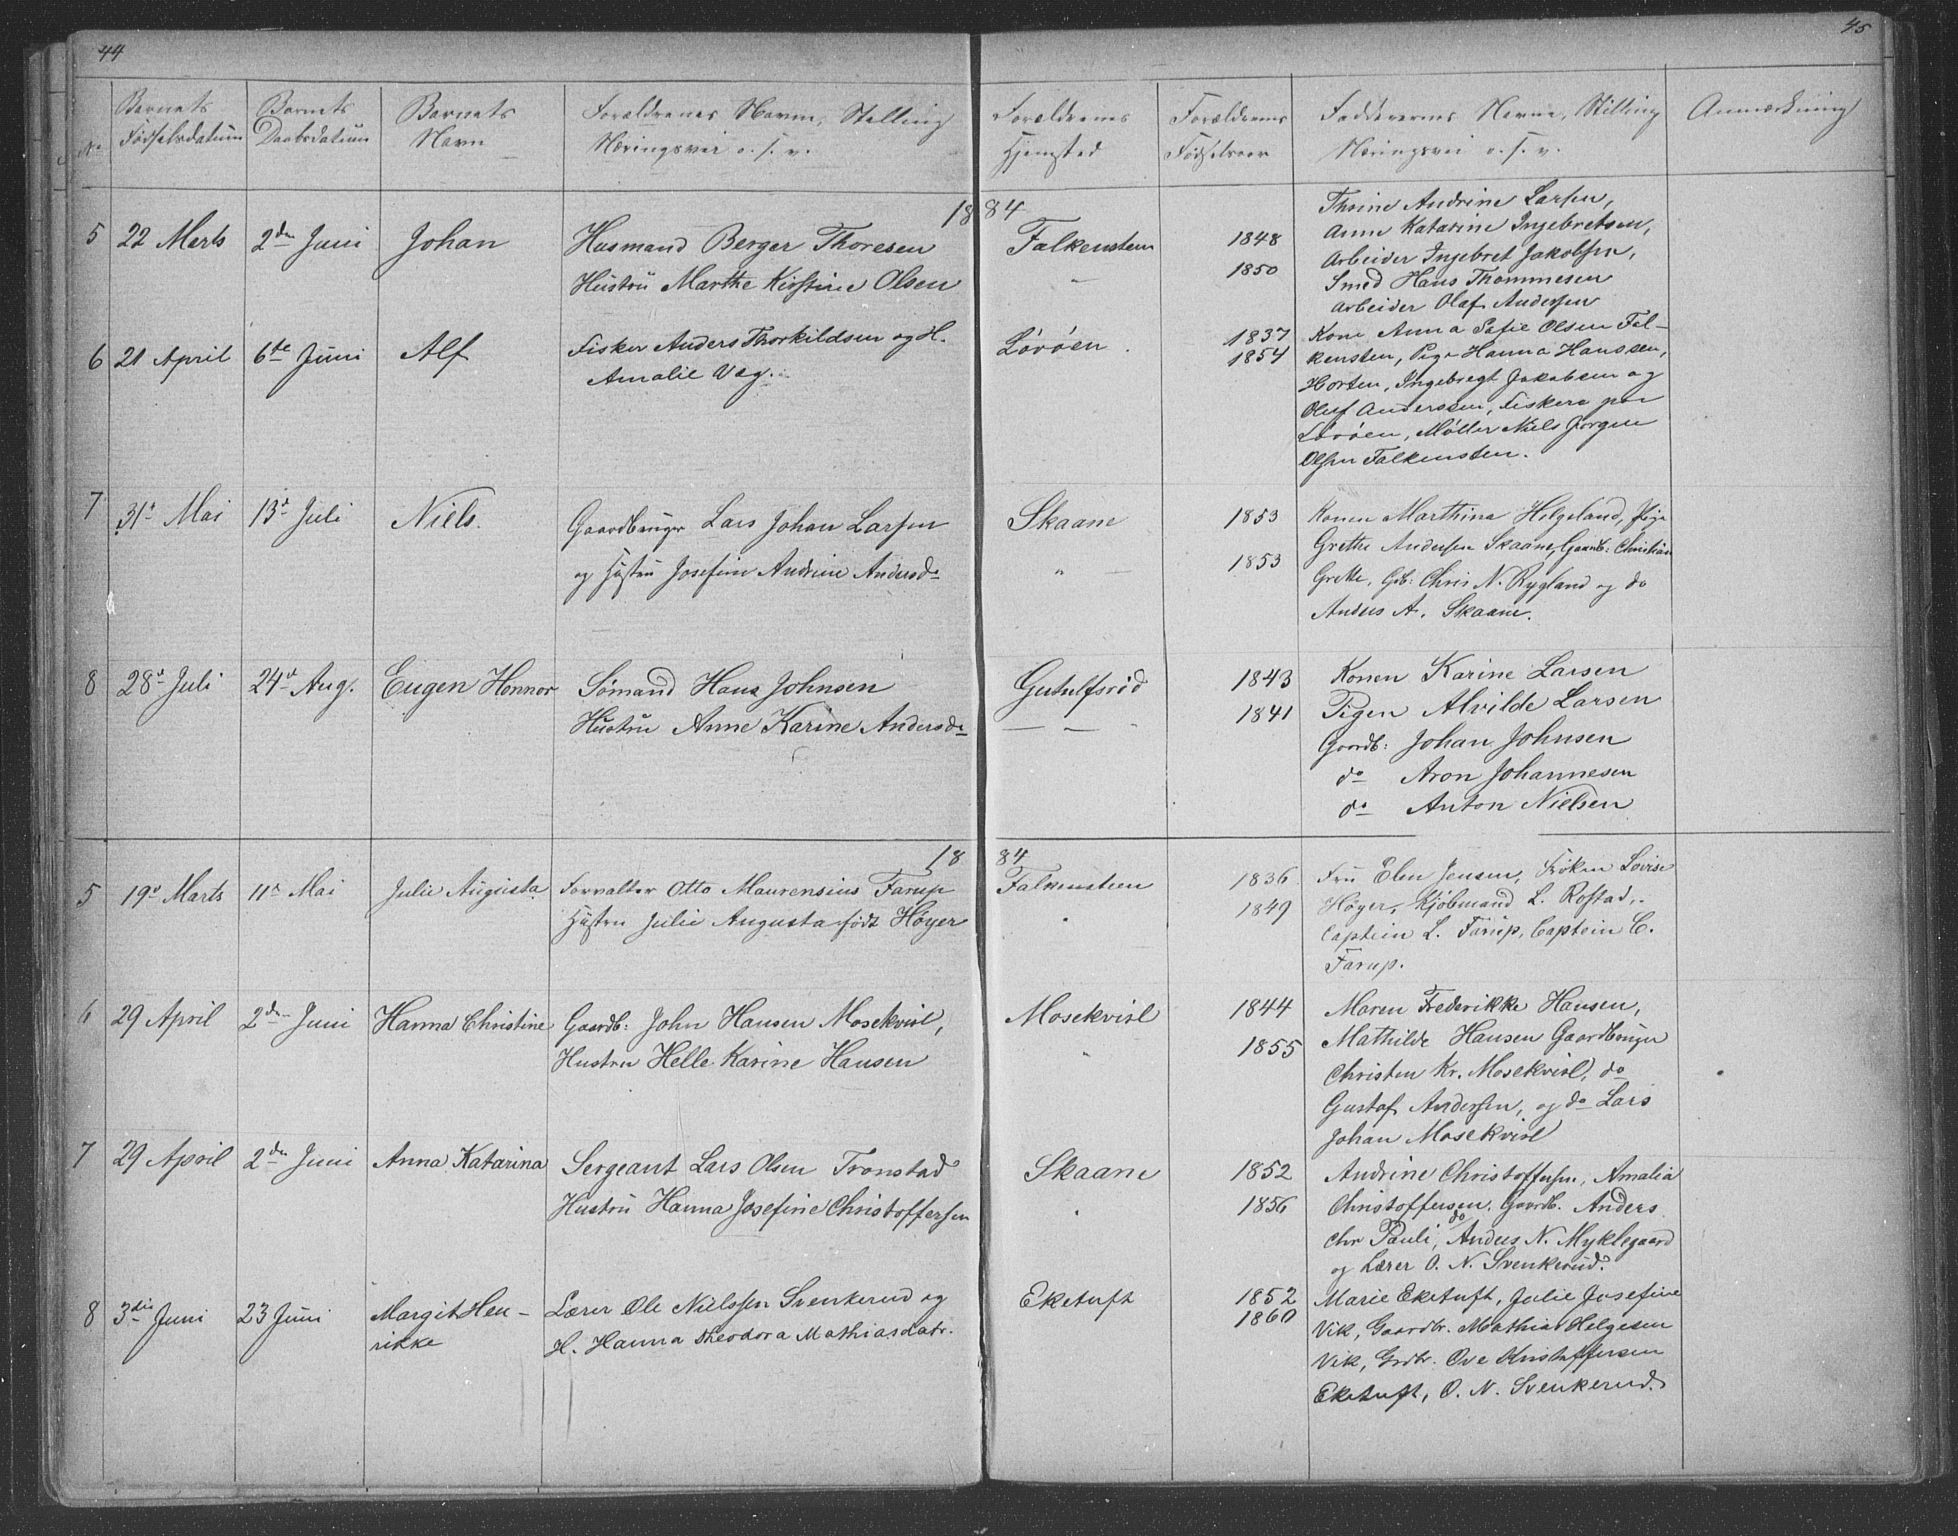 44
45
No
Barnets
Fødselsdatum
Barnets
Daabsdatum
Barnets
Navn
Forældrenes Navne, Stelling
Næringsvei o. s. v.
Forældrenes
Hjemsted
Forældrenes
Fødselsaar
Faddrernes Navne, Stilling
Næringsvei o. s. v.
Anmærkning
1884
5 22 Marts 2den Juni Johan
Husmand Berger Thoresen
Hustru Marthe Kirstine Olsen
Falkensten
"
1848
1850
Thrine Andrine Larsen,
Anne Katarine Ingebretsen,
Arbeider Ingebret Jakobsen,
Smed Hans Thommesen
Arbeider Olaf Andersen
6 21 April 6te Juni Alf
Fisker Anders Thorkildsen og H.
Amalie Veg.
Løvøen.
1837
1854
Kone Anna Sofie Olsen Fal-
kensten, Pige Hanna Hanssen,
Horten, Ingebregt Jakobsen og
Oluf Anderssen, Fiskere paa
Løvøen, Møller Niels Jørgen
Olsen Falkensten.
7 31t Mai 13d Juli Niels.
Gaardbruger Lars Johan Larsen
og Hustru Josefine Andrine Andersdr
Skaane
" —
1853
1853
Konen Marthina Helgeland, Pige
Grethe Andersen Skaane, Gaardb: Christian
Grette, Gdb: Chris N. Rygland og do
Anders A. Skaane.
8 28d Juli 24d Aug. Eugen Honnor
Sømand Hans Johnsen
Hustru Anne Karine Andersdr
Gutulfsrød
— — "
1843
1841
Konen Karine Larsen
Pigen Alvilde Larsen
Gaardb: Johan Johnsen
do Aron Johannesen
do Anton Nielsen
1884
5 19d Marts 11d Mai Julie Augusta
Forvalter Otto Maurensius Farup
Hustru Julie Augusta født Høyer
Falkensteen
"
1836
1849
Fru Elen Jensen, Frøken Lovise
Høyer, Kjøbmand L. Rostad,
Captein L. Farup, Captein C.
Farup.
6 29 April 2den Juni Hanna Christine
Gaardb: John Hansen Mosekvisl,
Hustru Helle Karine Hansen
Mosekvisl
"
1844
1855
Maren Frederikke Hansen,
Mathilde Hansen Gaardbruger
Christen Kr. Mosekvisl, do
Gustaf Andersen, og do Lars
Johan Mosekvisl
7 29 April 2den Juni Anna Katarina
Sergeant Lars Olsen Tronstad
Hustru Hanna Josefine Christoffersen
Skaane
"
1852
1856
Andrine Christoffersen, Amalia
Christoffersen, Gaardb. Anders
Chr Pauli, do Anders N. Myklegaard
og Lærer O. N. Svenkerud.
8 3die Juni 23 Juni Margit Hen-
rikke
Lærer Ole Nielssen Svenkerud og
H. Hanna Theodora Mathiasdatr.
Eketuft
1852
1860
Marie Eketuft, Julie Josefine
Vik, Gaardbr. Mathias Helgesen
Vik, Grdbr. Ove Kristoffersen
Eketuft, O. N. Svenkerud.